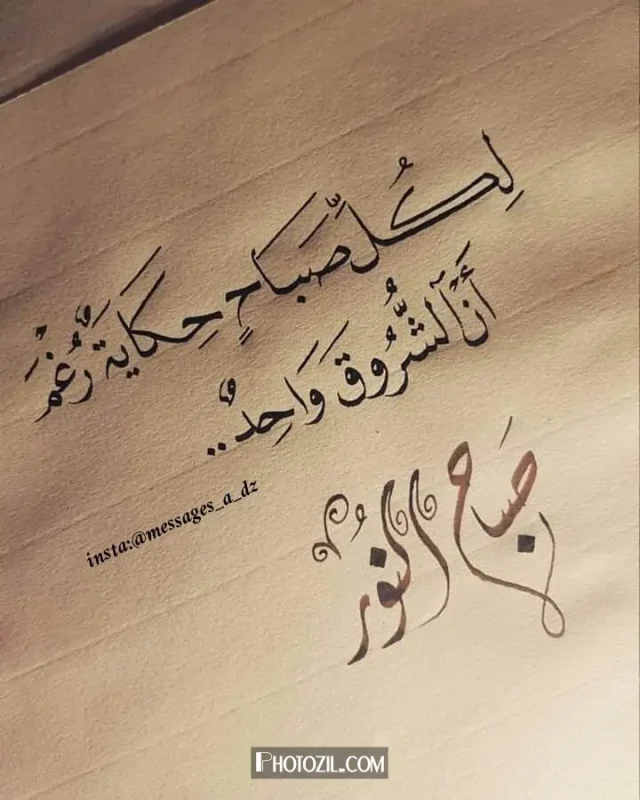 لِكُلِّ صَبَاحٍ حِكَايَةٌ رُغْمَ
أَنَّ الشُّرُوقَ وَاحِدٌ..
صباح النُّورُ
insta:@messages_a_dz
PHOTOZIL.COM